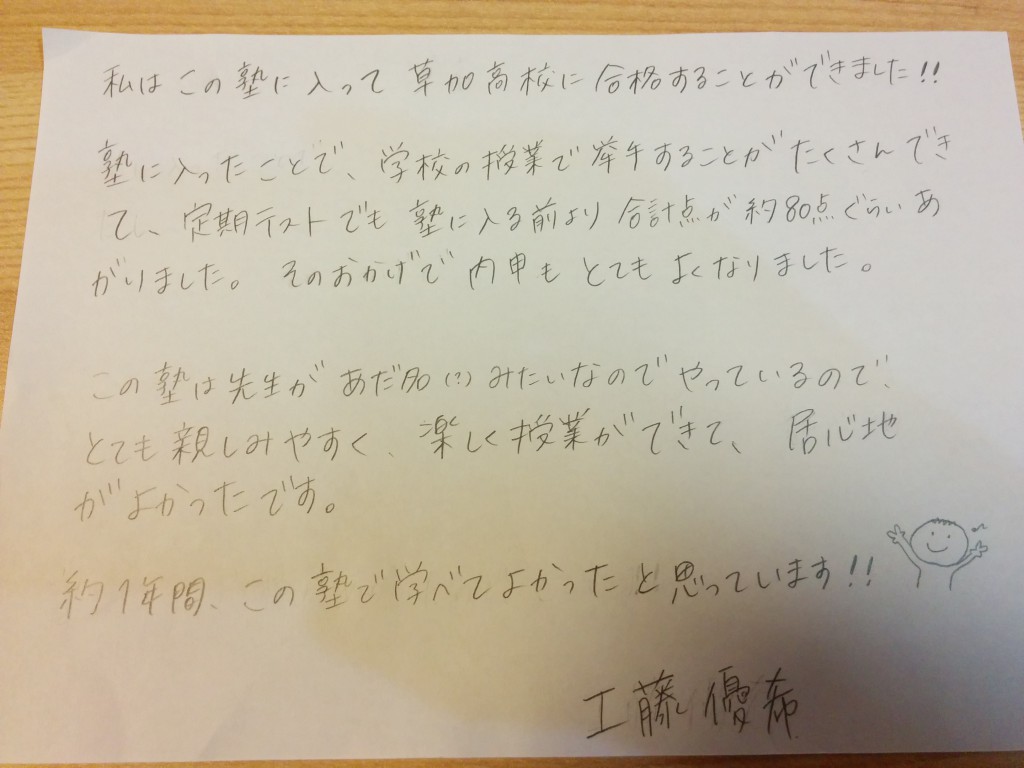 私はこの塾に入って草加高校に合格することができました!!
塾に入ったことで、学校の授業で挙手することがたくさんでき
て、定期テストでも塾に入る前より合計点が約80点ぐらいあ
がりました。そのおかげで内申もとてもよくなりました。
この塾は先生があだ名(?)みたいなのでやっているので、
とても親しみやすく、楽しく授業ができて、居心地
がよかったです。
約1年間、この塾で学べてよかったと思っています!!
工藤優希